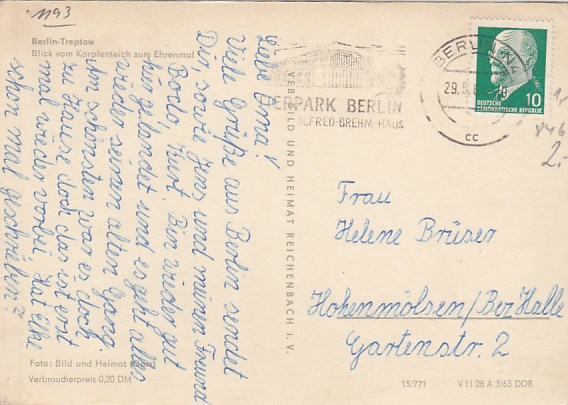 1193
Berlin-Treptow
Blick vom Karpfenteich zum Ehrenmal
Liebe Oma!
Viele Grüße aus Berlin sendet
Dir sowie Jens und meinen Freund
Bodo, Kurt. Bin wieder gut
hier gelandet und es geht alles
wieder seinen alten Gang.
Am schönsten war es doch
zu Hause doch das ist erst
mal wieder vorbei. Hat Elke
schon mal geschrieben?
Foto: Bild und Heimat
Verbraucherpreis 0,20 DM
VEB BILD UND HEIMAT REICHENBACH I. V.
TIERPARK BERLIN
ALFRED-BREHM-HAUS
BERLIN
29.5.
cc
DEUTSCHE
DEMOKRATISCHE REPUBLIK
10
846
2.-
Frau
Helene Brüser
Hohenmölsen/Bez Halle
Gartenstr. 2
15/771
V 11 28 A 3/63 DDR